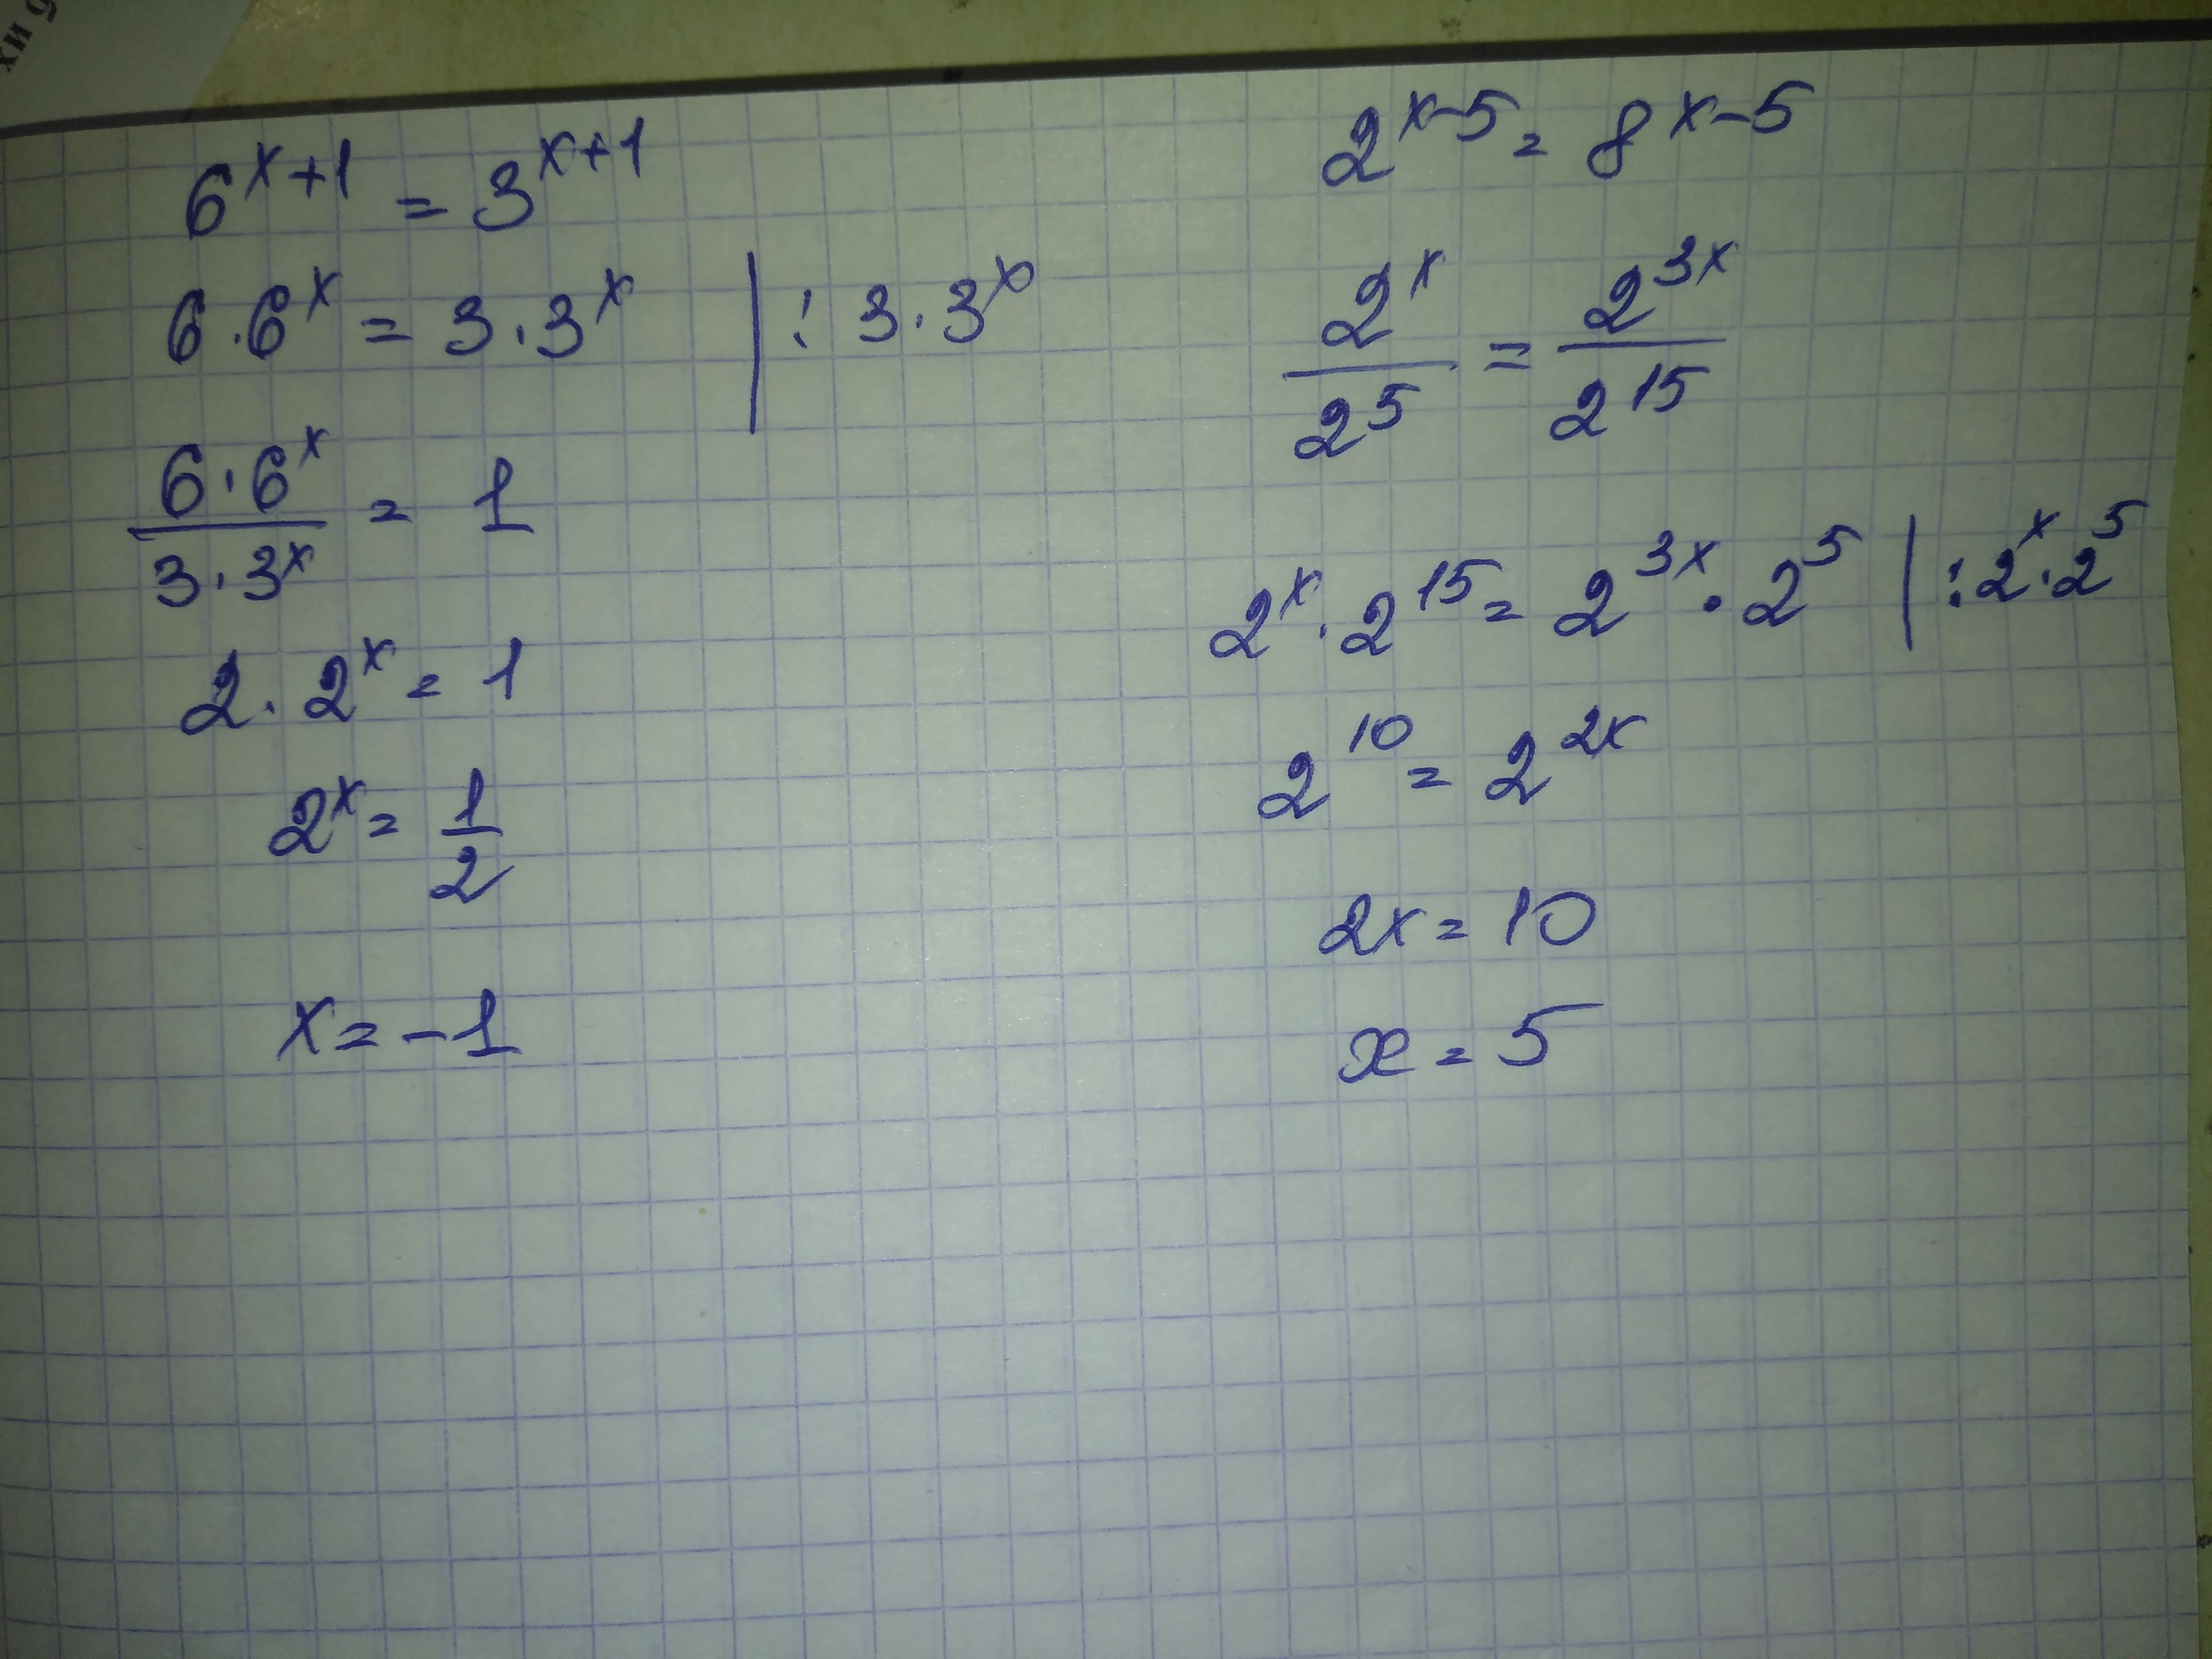 хи д
6^{x+1} = 3^{x+1}
6 · 6^x = 3 · 3^x | : 3 · 3^x
\frac{6 · 6^x}{3 · 3^x} = 1
2 · 2^x = 1
2^x = \frac{1}{2}
x = -1
2^{x-5} = 8^{x-5}
\frac{2^x}{2^5} = \frac{2^{3x}}{2^{15}}
2^x · 2^{15} = 2^{3x} · 2^5 | : 2^x · 2^5
2^{10} = 2^{2x}
2x = 10
x = 5